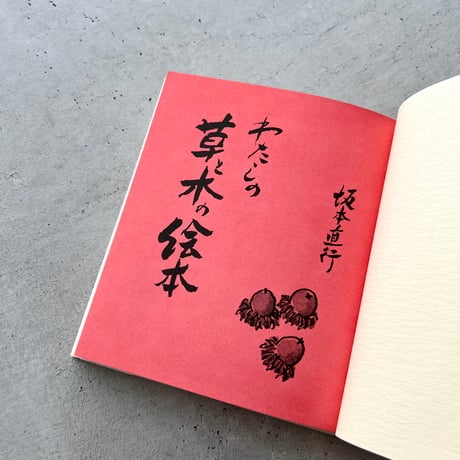 わたしの
草と木の絵本
坂本直行